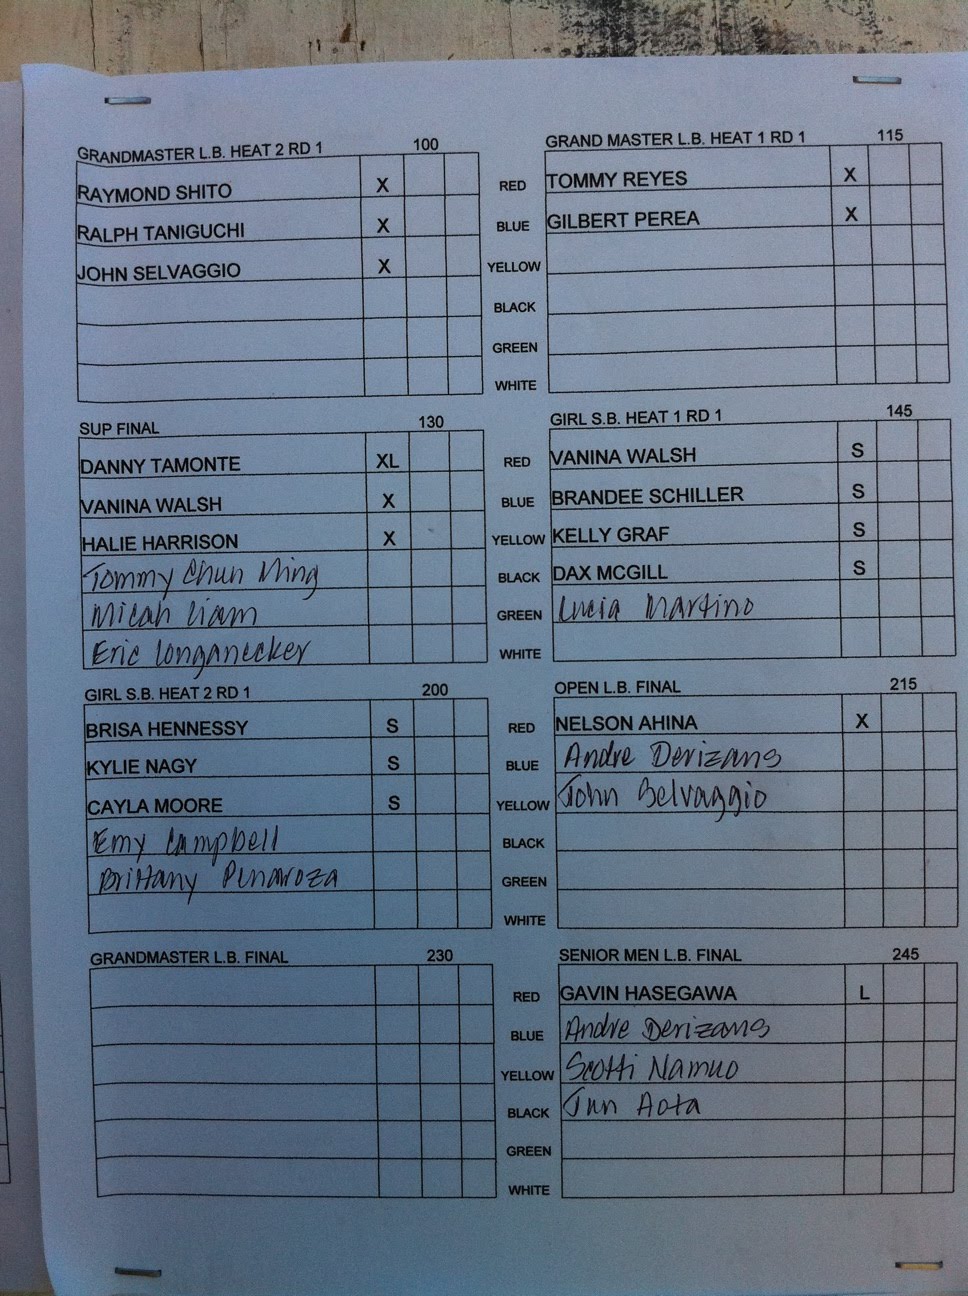 GRANDMASTER L.B. HEAT 2 RD 1 100
RAYMOND SHITO X
RALPH TANIGUCHI X
JOHN SELVAGGIO X
RED
BLUE
YELLOW
BLACK
GREEN
WHITE
GRAND MASTER L.B. HEAT 1 RD 1 115
TOMMY REYES X
GILBERT PEREA X
SUP FINAL 130
DANNY TAMONTE XL
VANINA WALSH X
HALIE HARRISON X
Tommy Chun Ming
Micah Liam
Eric Longanecker
RED
BLUE
YELLOW
BLACK
GREEN
WHITE
GIRL S.B. HEAT 1 RD 1 145
VANINA WALSH S
BRANDEE SCHILLER S
KELLY GRAF S
DAX MCGILL S
Lucia Martino
GIRL S.B. HEAT 2 RD 1 200
BRISA HENNESSY S
KYLIE NAGY S
CAYLA MOORE S
Emy Campbell
Brittany Penaroza
RED
BLUE
YELLOW
BLACK
GREEN
WHITE
OPEN L.B. FINAL 215
NELSON AHINA X
Andre Derizans
John Selvaggio
GRANDMASTER L.B. FINAL 230
RED
BLUE
YELLOW
BLACK
GREEN
WHITE
SENIOR MEN L.B. FINAL 245
GAVIN HASEGAWA L
Andre Derizans
Scotti Namuo
Aota